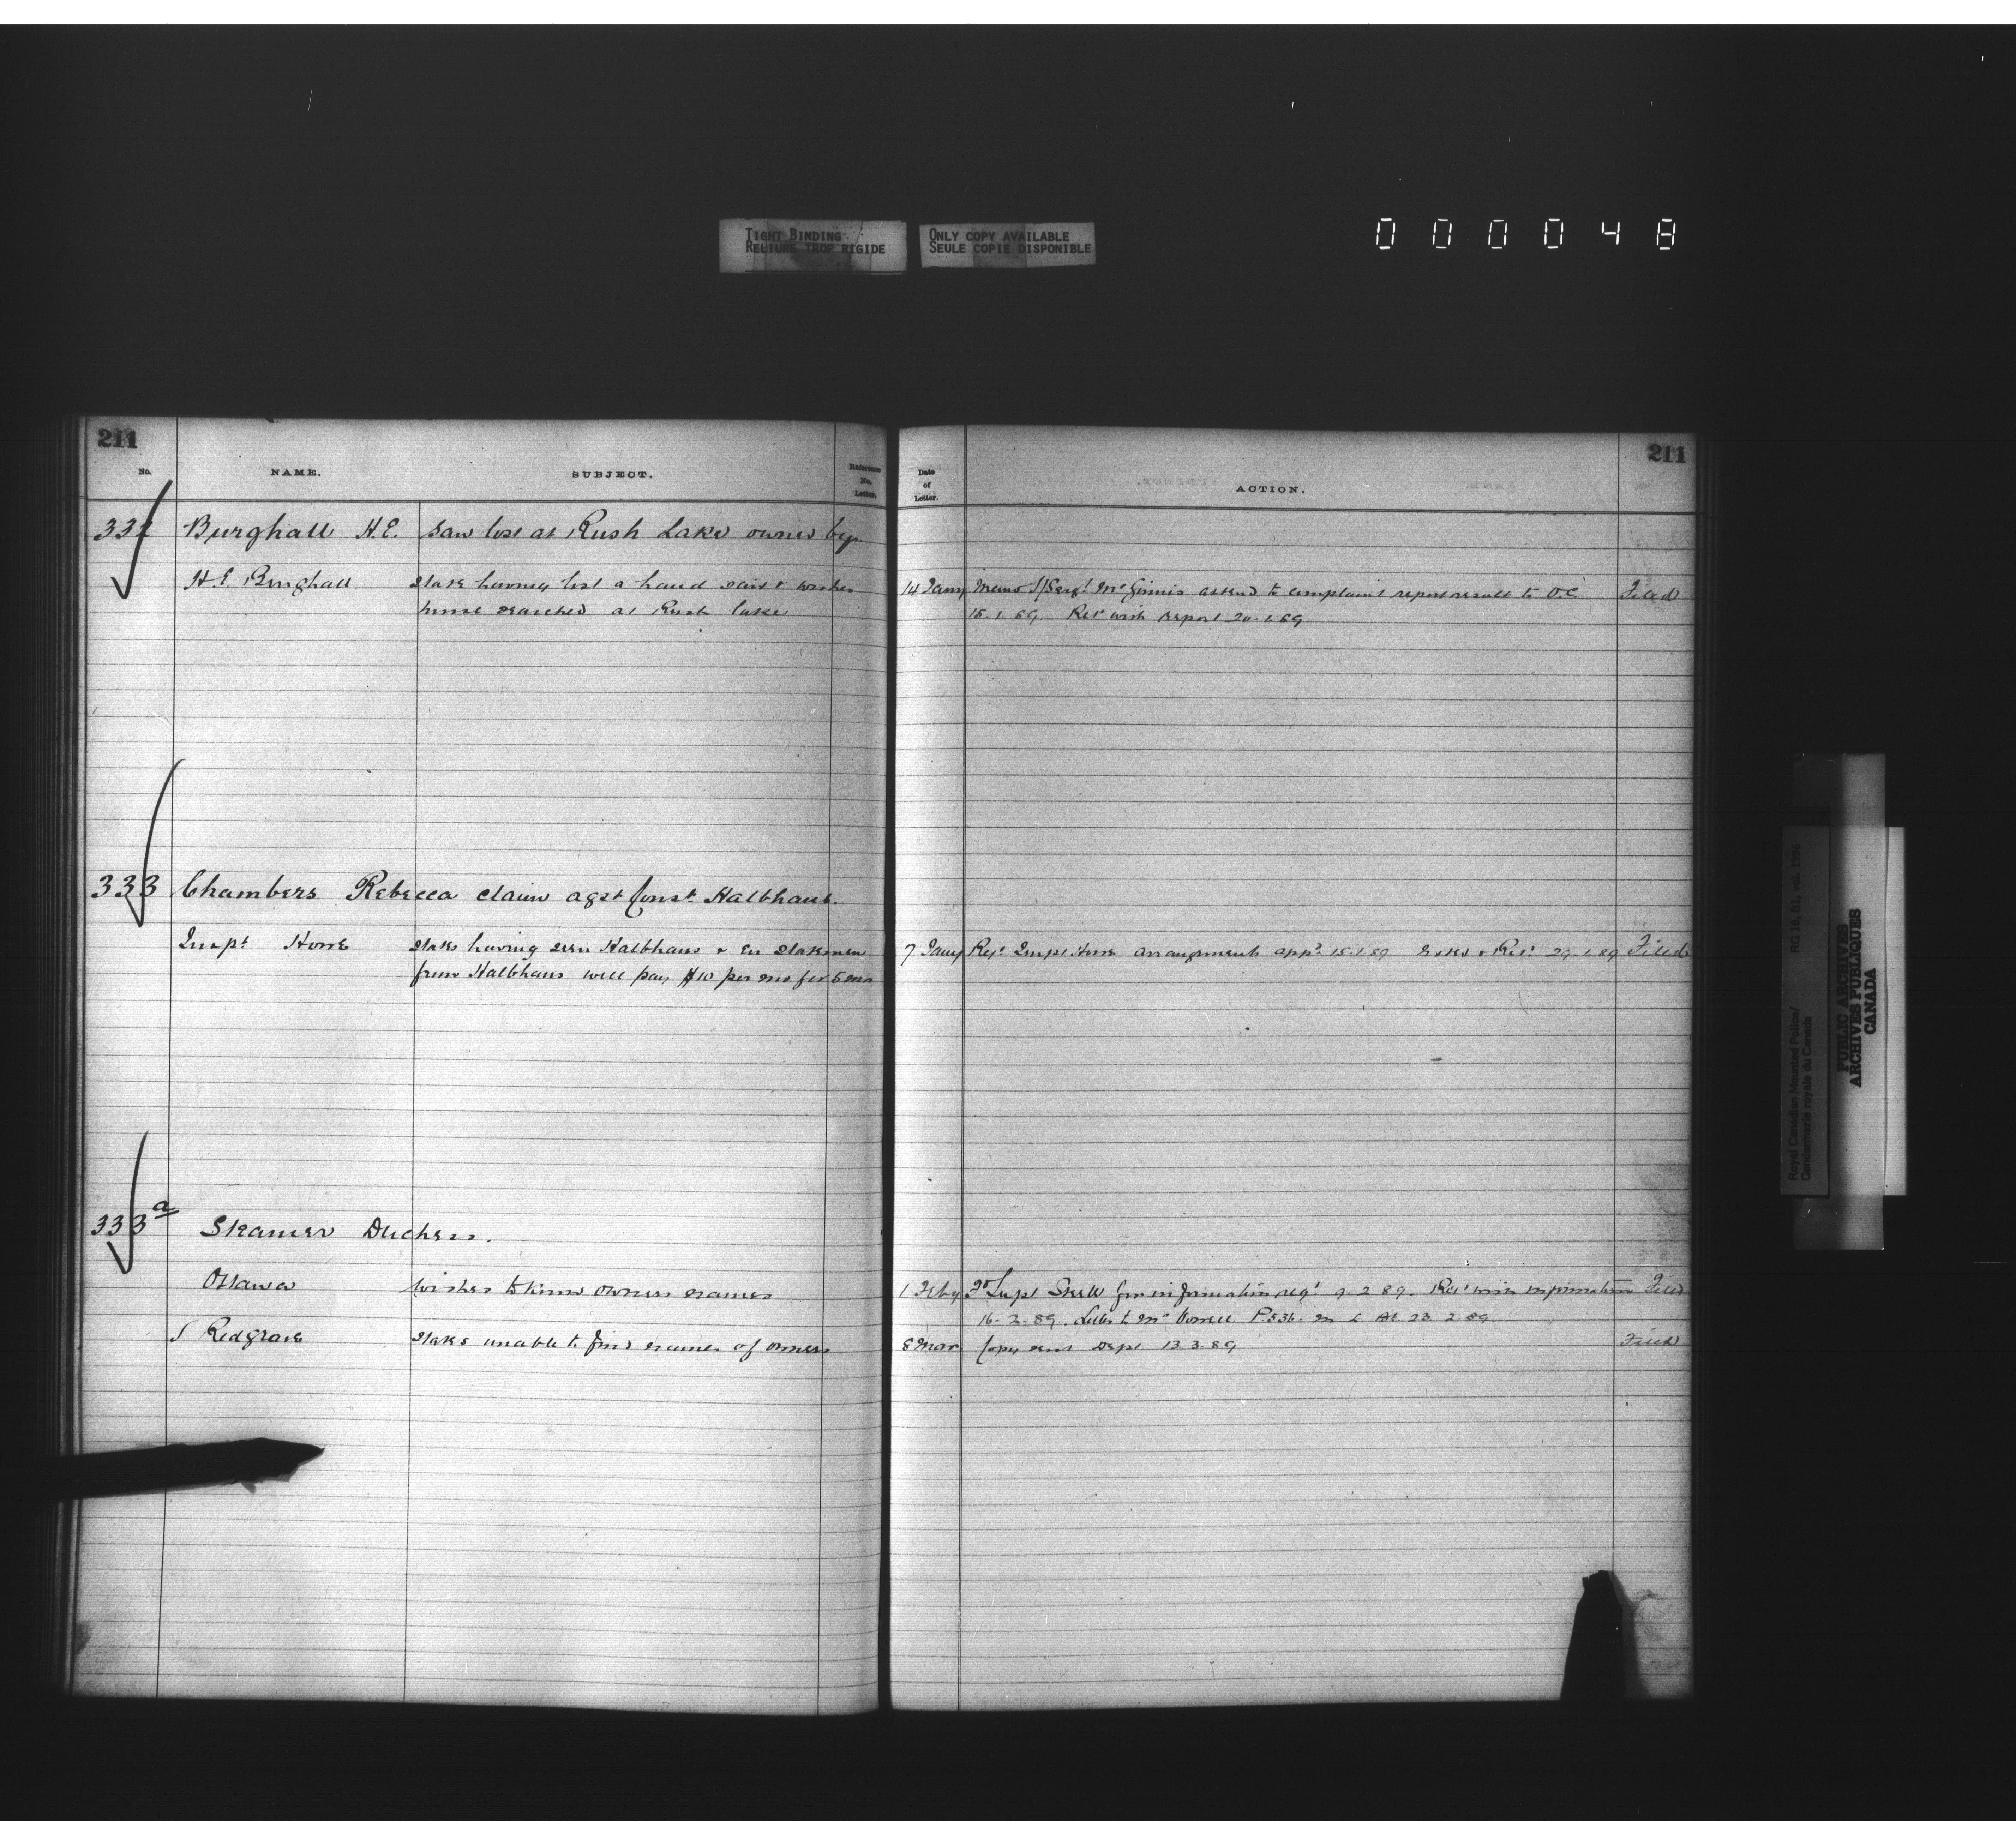 TIGHT BINDING
RELIURE TROP RIGIDE
ONLY COPY AVAILABLE
SEULE COPIE DISPONIBLE
000048
211
No.
NAME.
SUBJECT.
Reference No. Letter.
Date of Letter.
ACTION.
211
332 Burghall H.E. Saw lost at Rush Lake owned by
H.E. Burghall state having lost a hand saw & wishes 14 Jany Memo S/Sergt McGinnis attend to complaint report result to O.C. Filed
house searched at Rush Lake 15.1.89 Retd with report 20.1.89
333 Chambers Rebecca claim agst Const Halbhaus.
Inspt Howe states having seen Halbhaus & Enc statement 7 Jany Inspt Howe arrangements appd 15.1.89 & Retd 29.1.89 Filed
from Halbhaus will pay $10 per mo for 5 mos
333a Steamer Duchess.
Ottawa wishes to know owners names 1 Feby Fd Supt Steele for information reqd 9.2.89. Retd with information Filed
16.2.89. Letter to P 536. 23.2.89
S Redgrave states unable to find names of owners 8 Mar Copy sent Dept 13.3.89 Filed
Royal Canadian Mounted Police/
Gendarmerie royale du Canada
RG 18, B1, vol.
PUBLIC ARCHIVES
ARCHIVES PUBLIQUES
CANADA